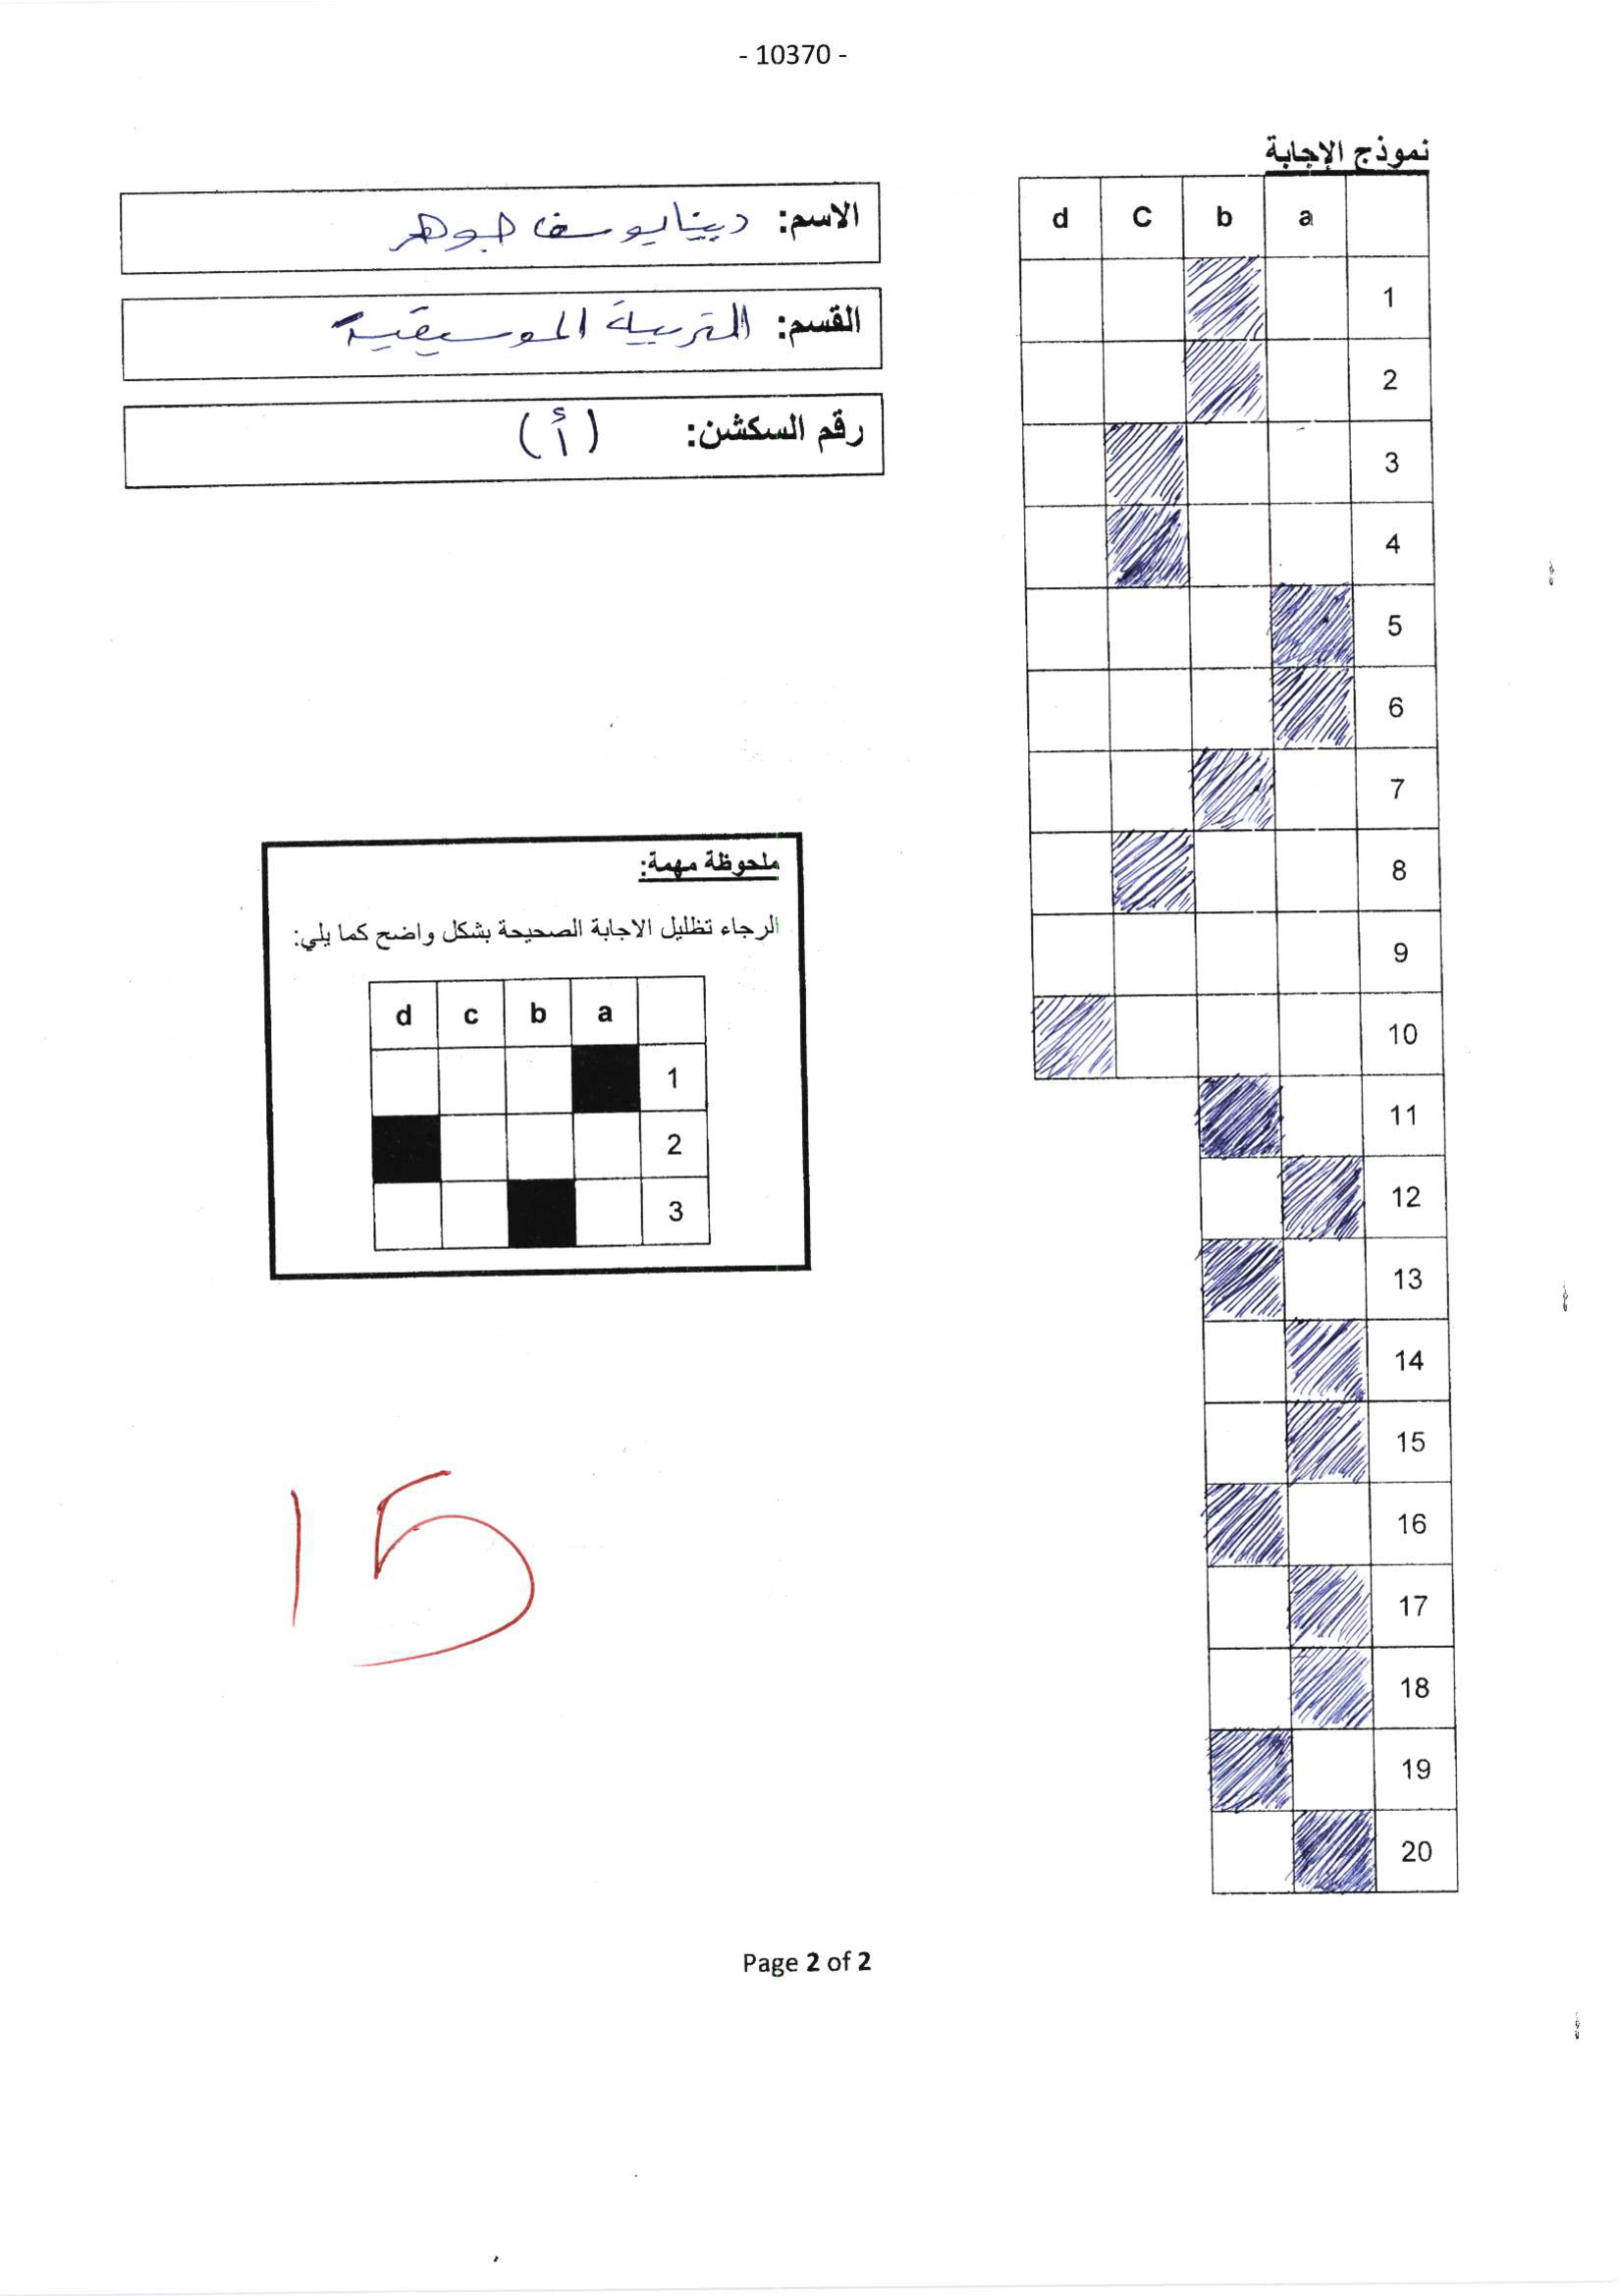 - 10370 -
نموذج الإجابة
a b C d
1
2
3
4
5
6
7
8
9
10
11
12
13
14
15
16
17
18
19
20
الاسم: دينا يوسف جوهر
القسم: التربية الموسيقية
رقم السكشن: (أ)
ملحوظة مهمة:
الرجاء تظليل الاجابة الصحيحة بشكل واضح كما يلي:
a b c d
1
2
3
15
Page 2 of 2